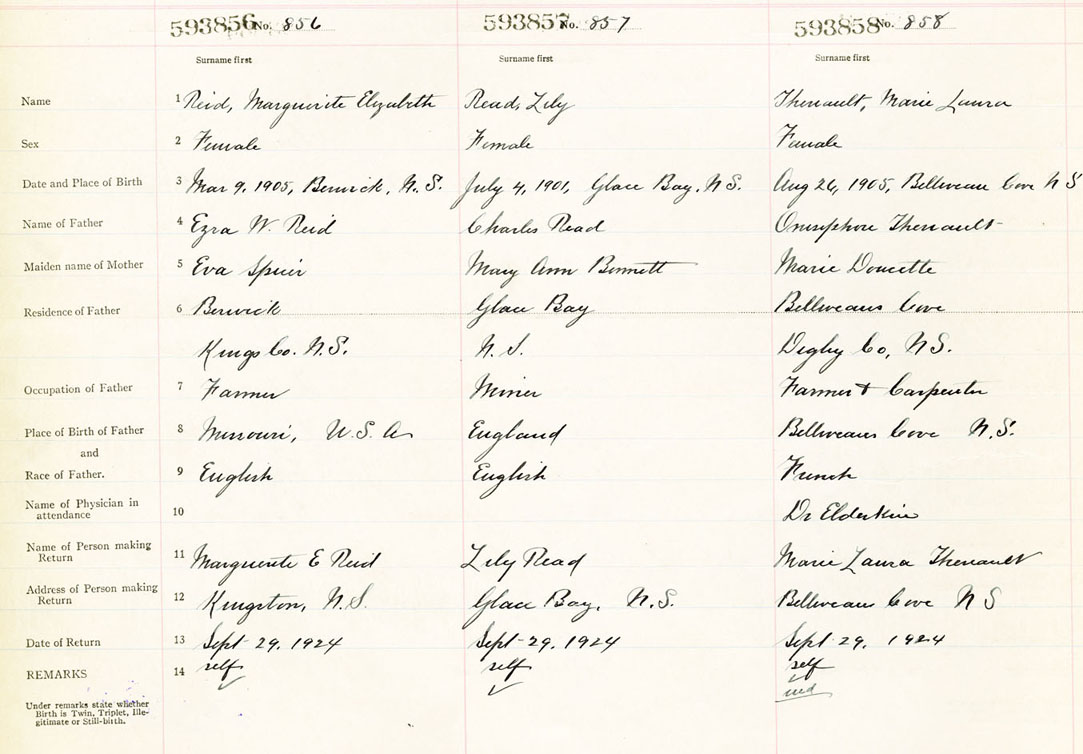 593856 No. 856 593857 No. 857 593858 No. 858
Surname first Surname first Surname first
Name 1 Reid, Marguerite Elizabeth Read, Lily Theriault, Marie Laura
Sex 2 Female Female Female
Date and Place of Birth 3 Mar 9, 1905, Berwick, N.S. July 4, 1901, Glace Bay, N.S. Aug 26, 1905, Belliveau Cove N S
Name of Father 4 Ezra W. Reid Charles Read Onesiphore Theriault
Maiden name of Mother 5 Eva Spicer Mary Ann Bennett Marie Doucette
Residence of Father 6 Berwick Glace Bay Belliveaus Cove
Kings Co. N.S. N.S. Digby Co, N.S.
Occupation of Father 7 Farmer Miner Farmer & Carpenter
Place of Birth of Father 8 Missouri, U.S.A. England Belliveaus Cove N.S.
and
Race of Father. 9 English English French
Name of Physician in
attendance 10 Dr Elderkin
Name of Person making
Return 11 Marguerite E Reid Lily Read Marie Laura Theriault
Address of Person making
Return 12 Kingston, N.S. Glace Bay, N.S. Belliveaus Cove N S
Date of Return 13 Sept 29, 1924 Sept 29, 1924 Sept 29, 1924
REMARKS 14 self self self
Under remarks state whether
Birth is Twin, Triplet, Ille-
gitimate or Still-birth.